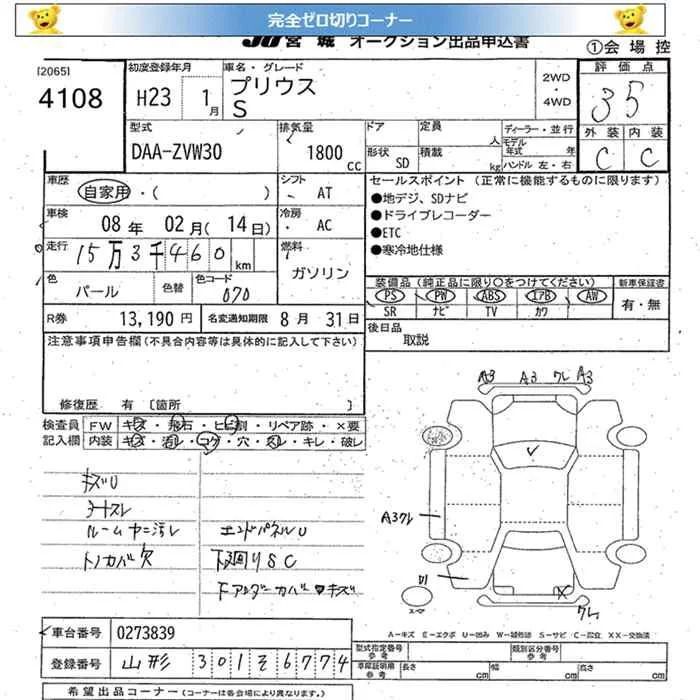 完全ゼロ切りコーナー
JU宮城 オークション出品申込書
①会場控
[2065]
4108
初度登録年月
H23 1月
車名・グレード
プリウス
S
2WD
・
4WD
評価点
35
型式
DAA-ZVW30
排気量
1800 cc
ドア
定員 人
形状 SD
積載 kg
ディーラー・並行
モデル年式 年
ハンドル 左・右
外装 内装
C C
車歴
自家用・( )
シフト
AT
車検
08年 02月(14日)
冷房
AC
走行
15万3千460km
燃料
ガソリン
色
パール
色替
色コード
070
R券 13,190円
名変通知期限 8月 31日
セールスポイント(正常に機能するものに限ります)
●地デジ、SDナビ
●ドライブレコーダー
●ETC
●寒冷地仕様
装備品(純正品に限り○をつけてください)
新車保証書
PS PW ABS エアB AW
SR ナビ TV カワ
有・無
後日品
取説
注意事項申告欄(不具合内容等は具体的に記入して下さい)
修復歴 有 [箇所 ]
検査員
記入欄
FW キズ・飛石・ヒビ割・リペア跡・×要
内装 キズ・汚レ・コゲ・穴・スレ・キレ・破レ
キズU
シートスレ
ルームヤニ汚レ
トノカバー欠
エンドパネルU
下廻りSC
下アンダーカバーキズ
A3 A3 クレ A3
A3クレ
U1
X
クレ
スペア
A-キズ E-エクボ U-凹み W-補修跡 S-サビ C-腐立 XX-交換済
車台番号 0273839
登録番号 山形 301そ6774
型式指定番号
参考
類別区分番号
参考
車庫証明用
参考
長さ cm
幅 cm
高さ cm
希望出品コーナー(コーナーは各会場により異なります。)